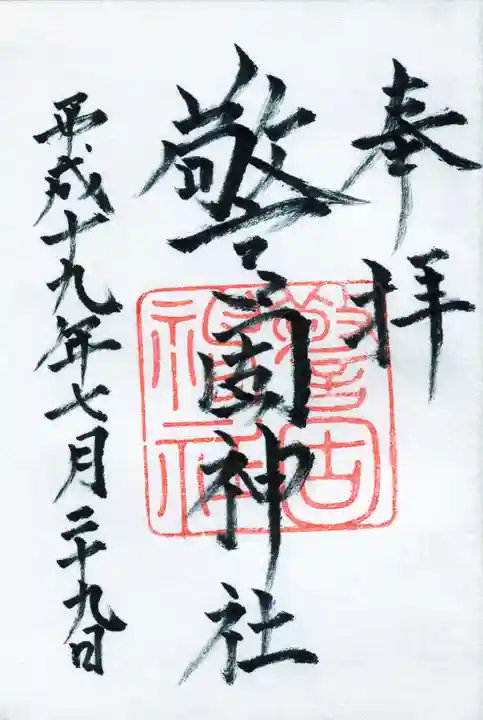 奉拝
警固神社
警固神社
平成十九年七月二十九日